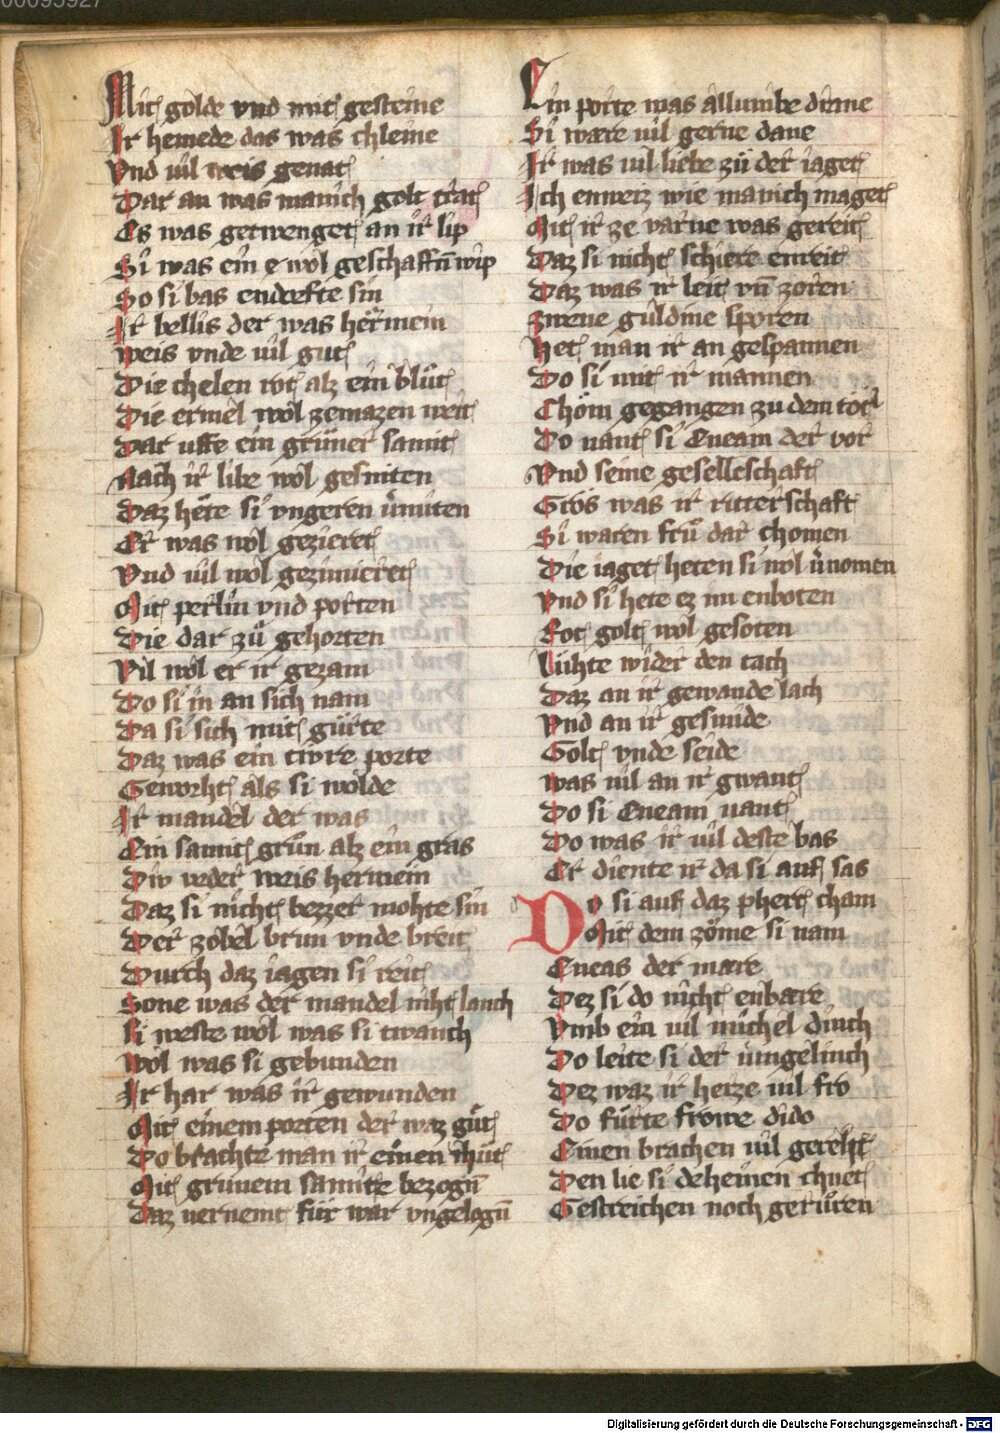 00095927
Mit golde vnd mit gesteine
Ir hemede das was chleine
Vnd uil weis genat
Dar an was manich golt trat
Es was getwenget an ir lip
Si was ein e wol geschaffn̄ wip
So si bas endorfte sin
Ir bellis der was hermein
Weis vnde uil gut
Die chelen rot alz ein blůt
Die ermel wol zemazen weit
Dar uffe ein grüner samit
Nach ir libe wol gesniten
Daz hete si vngeren v̓miten
Er was wol gezieret
Vnd uil wol gezimieret
Mit perlin vnd porten
Die dar zů gehorten
Vil wol er ir gezam
Do si in an sich nam
Da si sich mit gurte
Daz was ein tivre porte
Geworht als si wolde
Ir mandel der was
Ein samit grün alz ein gras
Div veder weis hermein
Daz si nicht bezzer mohte sin
Der zobel brun vnde breit
Durch daz iagen si reit
Sone was der mandel niht lanch
Si weste wol was si twanch
Wol was si gebunden
Ir har was ir gewunden
Mit einem porten der waz gůt
Do brachte man ir einen hůt
Mit grunem samite bezogn̄
Daz uernemt fur war vngelogn̄
Ein porte was allumbe dirane
Si ware uil gerne dane
Ir was uil liebe zů der iaget
Ich enweiz wie manich maget
Mit ir ze varne was gereit
Daz si nicht schiere enreit
Daz was ir leit vn̄ zoren
Zwene guldine sporen
Het man ir an gespannen
Do si mit ir mannen
Chöm gegangen zu dem tor
Do uant si Eneam der vor
Vnd seine geselleschaft
Gros was ir ritterschaft
Si waren frů dar chomen
Die iaget heten si wol v̓nomen
Vnd si hete ez im enboten
Rot golt wol gesoten
Lühte wider den tach
Daz an ir gewande lach
Vnd an ir gesmide
Golt vnde seide
Was uil an ir gwant
Do si Eneam uant
Do was ir uil deste bas
Er diente ir da si auf sas
Do si auf daz phert cham
Mit dem zöme si nam
Eneas der mare
Dez si do nicht enbare
Vmb ein uil michel dinch
Do leite si der iungelinch
Dez waz ir herze uil fro
Do fürte frowe dido
Einen brachen uil gereht
Den lie si deheinen chnet
Gestreichen noch gerůren
Digitalisierung gefördert durch die Deutsche Forschungsgemeinschaft - DFG